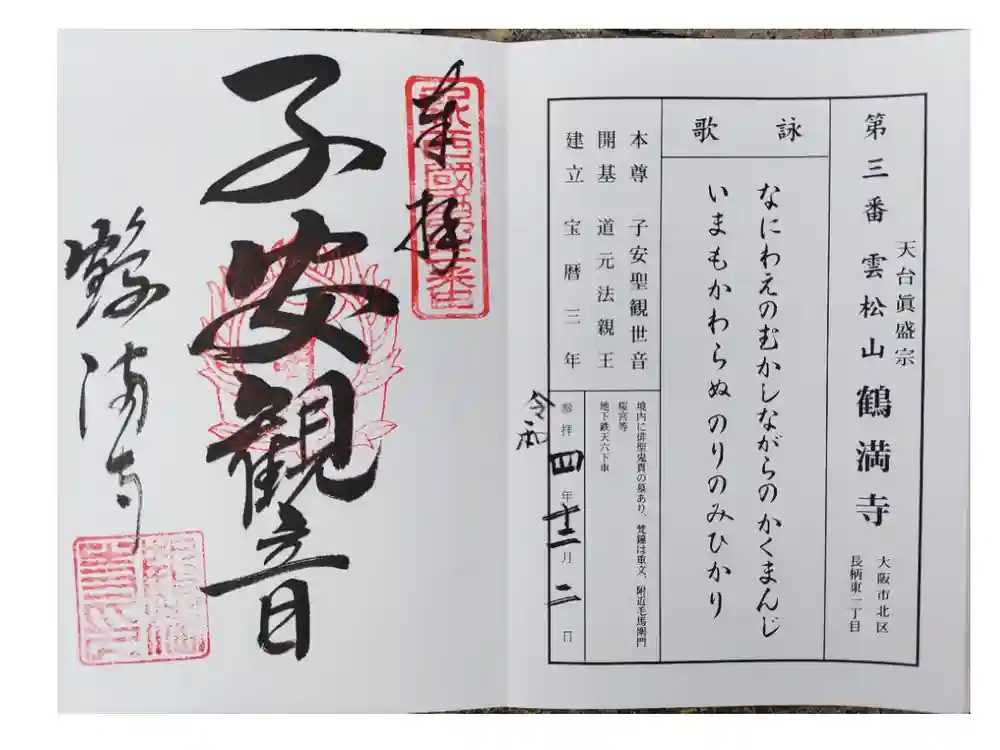 第三番 雲松山 鶴満寺
天台眞盛宗
大阪市北区
長柄東二丁目
詠歌
なにわえのむかしながらのかくまんじ
いまもかわらぬのりのみひかり
本尊 子安聖観世音
開基 道元法親王
建立 宝暦三年
境内に俳聖鬼貫の墓あり、梵鐘は重文、附近毛馬閘門
桜宮等
地下鉄天六下車
令和
参拝 四年十二月二日
奉拝
子安観音
鶴満寺